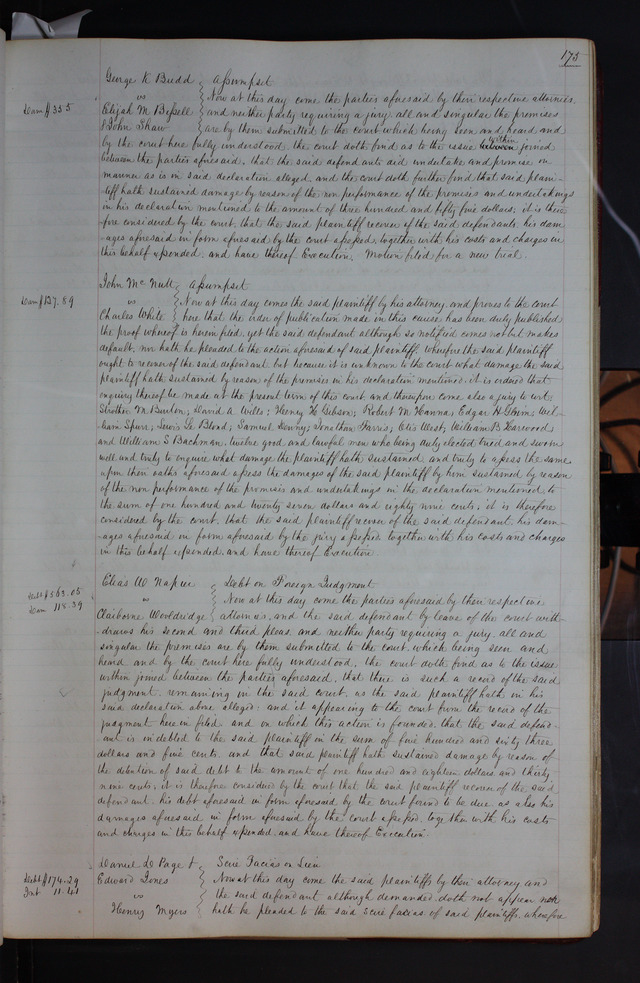 173
George K Budd } Assumpsit
vs } Now at this day come the parties aforesaid by their respective attornies
Dam $355 Elijah M Bissell } and neither party requiring a jury all and singular the premises
& John Shaw } are by them submitted to the court which being seen and heard and
by the court here fully understood, the court doth find as to the issue within between joined
between the parties aforesaid, that the said defendants did undertake and promise in
manner as is in said declaration alleged, and the court doth further find that said plain-
-tiff hath sustained damage by reason of the non performance of the promises and undertakings
in his declaration mentioned to the amount of three hundred and fifty five dollars; it is there
-fore considered by the court, that the said plaintiff recover of the said defendants his dam
-ages aforesaid in form aforesaid by the court assessed, together with his costs and charges in
this behalf expended, and have thereof Execution. Motion filed for a new trial.
John Mc Nulty } Assumpsit
Dam $127.89 vs } Now at this day comes the said plaintiff by his attorney, and proves to the court
Charles White } here that the order of publication made in this cause has been duly published
the proof whereof is herein filed, yet the said defendant although so notified comes not but makes
default, nor hath he pleaded to the action aforesaid of said plaintiff, wherefore the said plaintiff
ought to recover of the said defendant but because it is unknown to the court what damage the said
plaintiff hath sustained by reason of the premises in his declaration mentioned, it is ordered that
enquiry thereof be made at the present term of this court, and thereupon come also a jury to wit
Strother M Burton, David A Wills, Henry H Gibson, Robert M Hanna, Edgar H Glenn, Wil-
liam Spurr, Lewis Le Blond, Samuel Downy, Jonathan Farris, Otis West, William B Harwood,
and William S Bachman, twelve good and lawful men who being duly elected tried and sworn
well and truly to enquire what damage the plaintiff hath sustained and truly to assess the same
upon their oaths aforesaid assess the damages of the said plaintiff by him sustained by reason
of the non performance of the promises and undertakings in the declaration mentioned to
the sum of one hundred and twenty seven dollars and eighty nine cents; it is therefore
considered by the court, that the said plaintiff recover of the said defendant, his dam-
-ages aforesaid in form aforesaid by the jury assessed together with his costs and charges
in this behalf expended, and have thereof Execution
Elias W Napier } Debt on Foreign Judgment
Debt $563.05 vs } Now at this day come the parties aforesaid by their respective
Dam 118.39 Claiborne Wooldridge } attornies, and the said defendant by leave of the court with
-draws his second and third pleas, and neither party requiring a jury, all and
singular the premises are by them submitted to the court, which being seen and
heard and by the court here fully understood, the court doth find as to the issue
within joined between the parties aforesaid, that there is such a record of the said
judgment remaining in the said court, as the said plaintiff hath in his
said declaration above alleged; and it appearing to the court from the record of the
judgment herein filed and on which this action is founded, that the said defend-
-ant is indebted to the said plaintiff in the sum of five hundred and sixty three
dollars and five cents, and that said plaintiff hath sustained damage by reason of
the detention of said debt to the amount of one hundred and eighteen dollars and thirty
nine cents; it is therefore considered by the court that the said plaintiff recover of the said
defendant, his debt aforesaid in form aforesaid by the court found to be due as also his
damages aforesaid in form aforesaid by the court assessed, together with his costs
and charges in this behalf expended, and have thereof Execution.
Daniel D Page & } Scire Facias on Lien
Debt $174.29 Edward Jones } Now at this day come the said plaintiffs by their attorney and
Int 11.41 vs } the said defendant although demanded doth not appear nor
Henry Myers } hath he pleaded to the said scire facias of said plaintiffs, wherefore